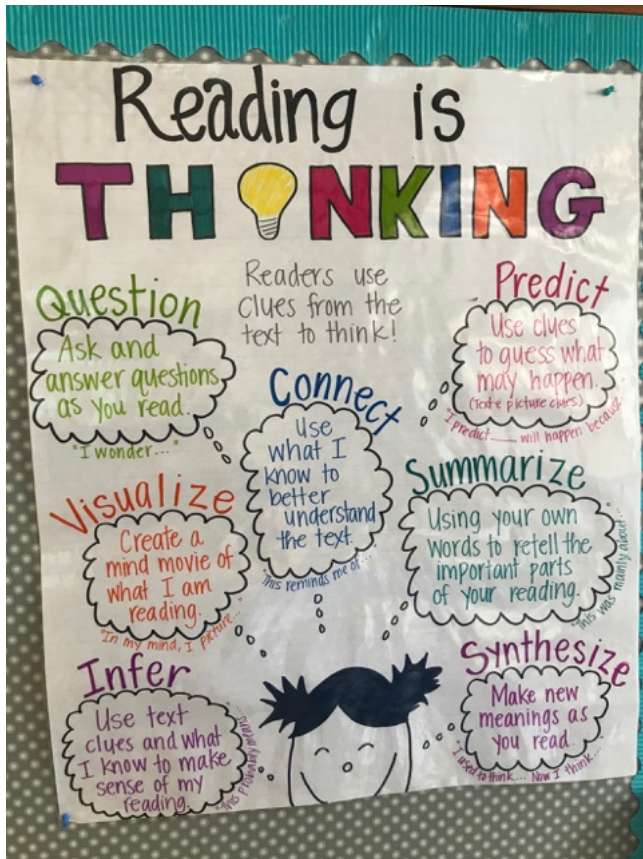 Reading is
THINKING
Readers use
clues from the
text to think!
Question
Ask and
answer questions
as you read.
"I wonder..."
Predict
Use clues
to guess what
may happen.
(text & picture clues)
"I predict ___ will happen because
Connect
Use
what I
know to
better
understand
the text.
"This reminds me of...
Visualize
Create a
mind movie of
what I am
reading.
"In my mind, I picture..."
Summarize
Using your own
words to retell the
important parts
of your reading.
"This was mainly about..."
Infer
Use text
clues and what
I know to make
sense of my
reading.
"This probably means..."
Synthesize
Make new
meanings as
you read.
"I used to think... Now I think...